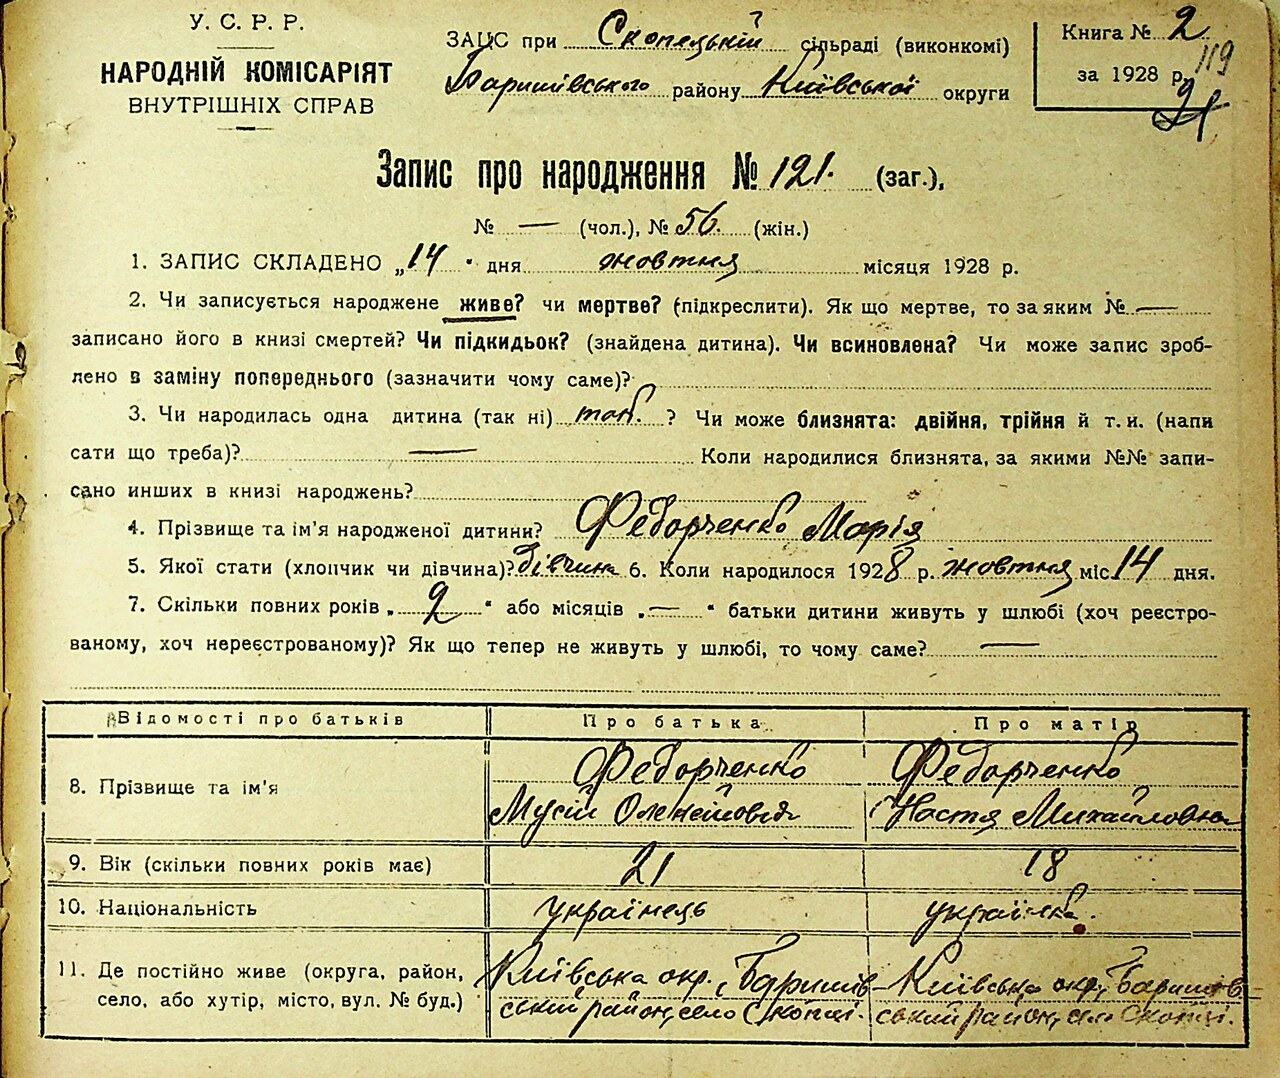 У. С. Р. Р.
НАРОДНІЙ КОМІСАРІЯТ
ВНУТРІШНІХ СПРАВ
ЗАЦС при Скопецькій сільраді (виконкомі)
Баришівського району Київської округи
Книга № 2
за 1928 р.
119
91
Запис про народження № 121. (заг.),
№ — (чол.), № 56. (жін.)
1. ЗАПИС СКЛАДЕНО „14" дня жовтня місяця 1928 р.
2. Чи записується народжене живе? чи мертве? (підкреслити). Як що мертве, то за яким № —
записано його в книзі смертей? Чи підкидьок? (знайдена дитина). Чи всиновлена? Чи може запис зроб-
лено в заміну попереднього (зазначити чому саме)?
3. Чи народилась одна дитина (так ні) ? Чи може близнята: двійня, трійня й т. и. (напи
сати що треба)? — Коли народилися близнята, за якими №№ запи-
сано инших в книзі народжень?
4. Прізвище та ім'я народженої дитини? Федорченко Марія
5. Якої стати (хлопчик чи дівчина)? дівчина 6. Коли народилося 1928 р. жовтня міс. 14 дня.
7. Скільки повних років „ 2 " або місяців „ — " батьки дитини живуть у шлюбі (хоч реєстро-
ваному, хоч нереєстрованому)? Як що тепер не живуть у шлюбі, то чому саме? —
Відомості про батьків Про батька Про матір
8. Прізвище та ім'я Федорченко Федорченко
Мусій Олексійович Настя Михайловна
9. Вік (скільки повних років має) 21 18
10. Національність українець українка.
11. Де постійно живе (округа, район, Київська окр., Баришів- Київська окр., Баришів-
село, або хутір, місто, вул. № буд.) ський район, село Скопці. ський район, село Скопці.